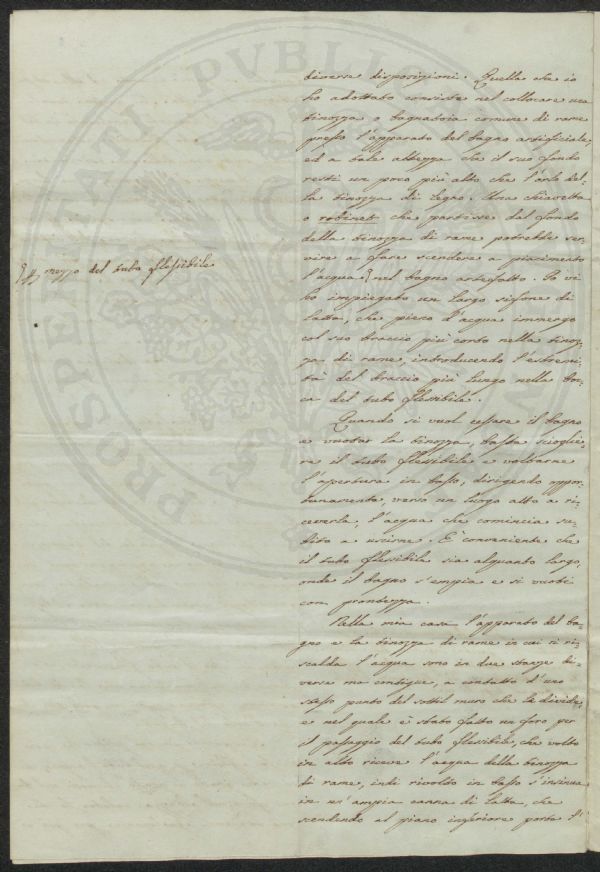 diverse disposizioni. Quella che io
ho adottato consiste nel collocare una
tinozza o bagnatoia comune di rame
presso l'apparato del bagno artificiale,
ed a tale altezza che il suo fondo
resti un poco più alto che l'orlo del-
la tinozza di legno. Una chiavetta
o robinet che partisse dal fondo
della tinozza di rame potrebbe ser-
vire a fare scendere a piacimento
l'acqua } nel bagno artefatto. Io vi
} p mezzo del tubo flessibile
ho impiegato un largo sifone di
latta, che pieno d'acqua immergo
col suo braccio più corto nella tinoz-
za di rame, introducendo l'estremi-
tà del braccio più lungo nella boc-
ca del tubo flessibile.
Quando si vuol cessare il bagno
e vuotar la tinozza, basta scioglie-
re il tubo flessibile e voltarne
l'apertura in basso, dirigendo oppor-
tunamente, verso un luogo atto a ri-
ceverla, l'acqua che comincia su-
bito a uscirne. È conveniente che
il tubo flessibile sia alquanto largo,
onde il bagno s'empia e si vuoti
con prontezza.
Nella mia casa l'apparato del ba-
gno e la tinozza di rame in cui si ri-
scalda l'acqua sono in due stanze di-
verse ma contigue, a contatto d'uno
stesso punto del sottil muro che le divide,
e nel quale è stato fatto un foro per
il passaggio del tubo flessibile, che volto
in alto riceve l'acqua della tinozza
di rame, indi rivolto in basso s'insinua
in un'ampia canna di latta, che
scendendo al piano inferiore porta l'
PROSPERITATI PVBLIC